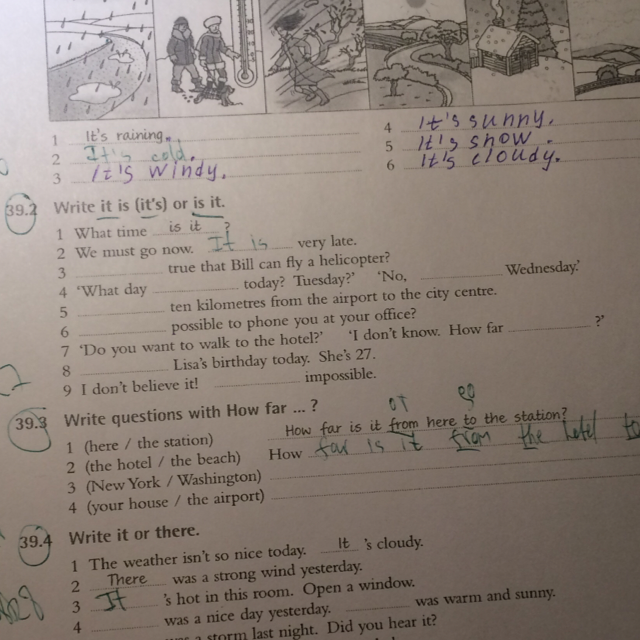 1 It's raining.
2 It's cold.
3 It's windy.
4 It's sunny.
5 It's snow.
6 It's cloudy.
39.2 Write it is (it's) or is it.
1 What time is it ?
2 We must go now. It is very late.
3 true that Bill can fly a helicopter?
4 'What day today? Tuesday?' 'No, Wednesday.'
5 ten kilometres from the airport to the city centre.
6 possible to phone you at your office?
7 'Do you want to walk to the hotel?' 'I don't know. How far ?'
8 Lisa's birthday today. She's 27.
9 I don't believe it! impossible.
от
39.3 Write questions with How far ... ?
1 (here / the station) How far is it from here to the station?
2 (the hotel / the beach) How far is it from the hotel to
3 (New York / Washington)
4 (your house / the airport)
39.4 Write it or there.
1 The weather isn't so nice today. It 's cloudy.
2 There was a strong wind yesterday.
3 It 's hot in this room. Open a window.
4 was a nice day yesterday. was warm and sunny.
was a storm last night. Did you hear it?